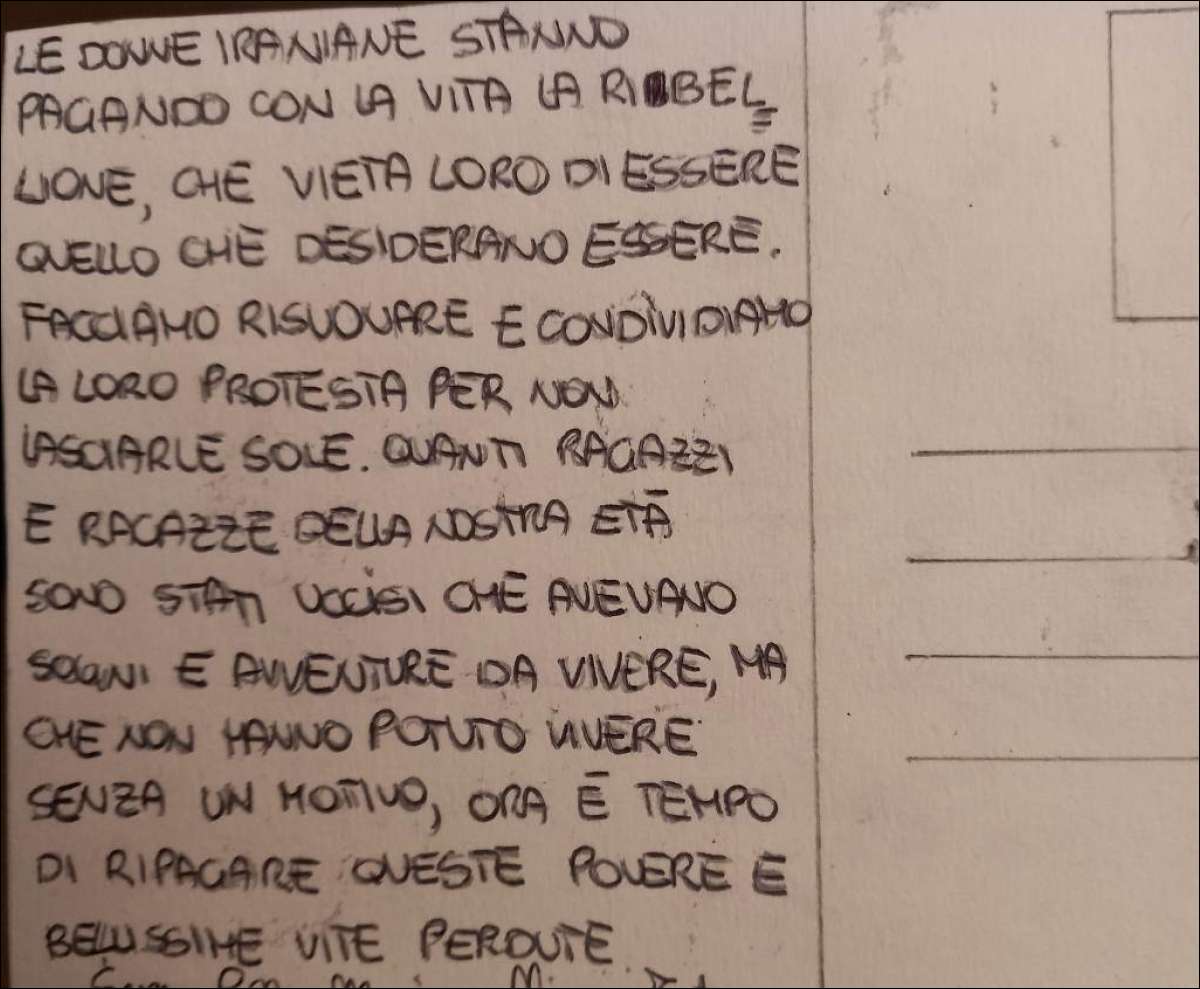 LE DONNE IRANIANE STANNO
PAGANDO CON LA VITA LA RIBEL=
LIONE, CHE VIETA LORO DI ESSERE
QUELLO CHE DESIDERANO ESSERE.
FACCIAMO RISUONARE E CONDIVIDIAMO
LA LORO PROTESTA PER NON
LASCIARLE SOLE. QUANTI RAGAZZI
E RAGAZZE DELLA NOSTRA ETÀ
SONO STATI UCCISI CHE AVEVANO
SOGNI E AVVENTURE DA VIVERE, MA
CHE NON HANNO POTUTO VIVERE
SENZA UN MOTIVO, ORA È TEMPO
DI RIPAGARE QUESTE POVERE E
BELLISSIME VITE PERDUTE